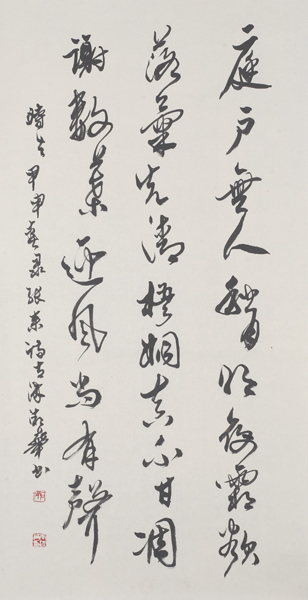 庭戶無人秋月明夜霜欲
落氣先清梧桐真不甘凋
謝數葉迎風尚有聲
時在甲申春录張耒詩華书